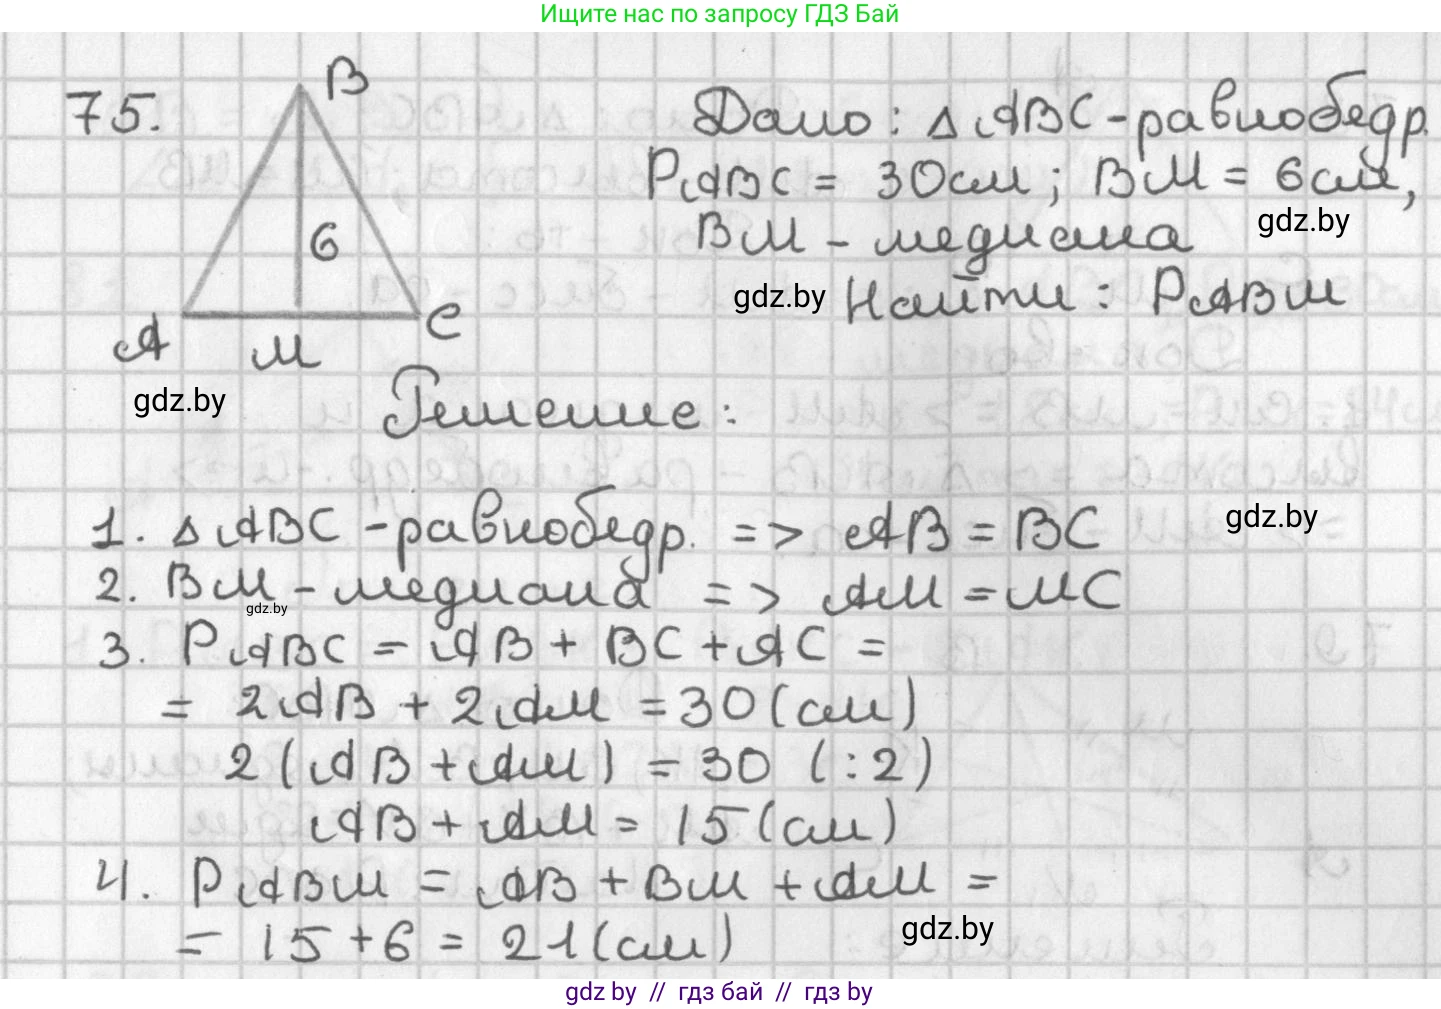 Ищите нас по запросу ГДЗ Бай
75.
B
6
A
M
C
Дано: △ABC-равнобедр.
PABC = 30см; BM = 6см,
gdz.by
BM - медиана
gdz.by
Найти: PABM
gdz.by
Решение:
1. △ABC -равнобедр. => AB = BC
gdz.by
2. BM - медиана => AM = MC
gdz.by
3. PABC = AB + BC + AC =
= 2AB + 2AM = 30(см)
2(AB + AM) = 30 (:2)
AB + AM = 15(см)
4. PABM = AB + BM + AM =
gdz.by
= 15 + 6 = 21(см)
gdz by // гдз бай // гдз by